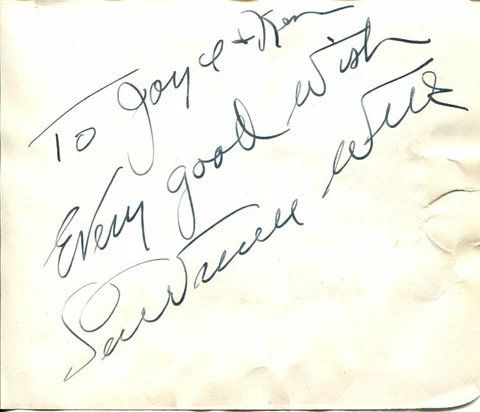 To Joyce + Ken
Every good Wish
Lawrence Welk